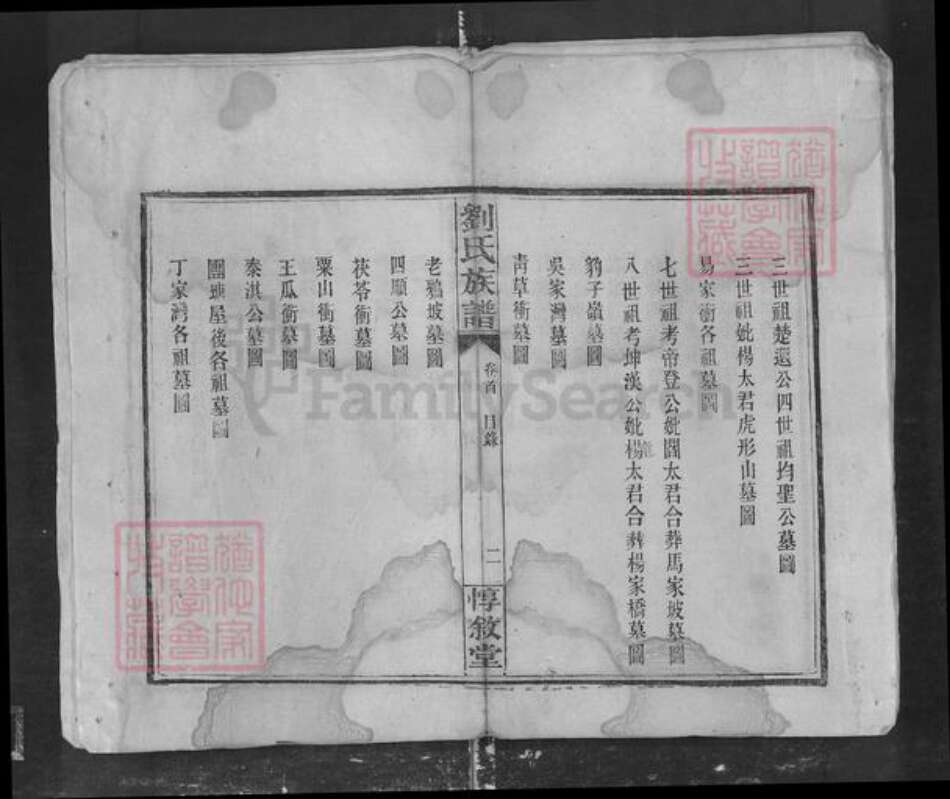 三世祖楚遥公四世祖均聖公墓圖
三世祖妣楊太君虎形山墓圖
易家衝各祖墓圖
七世祖考帝登公妣閻太君合葬馬家坡墓圖
八世祖考坤漢公妣楊太君合葬楊家橋墓圖
豹子嶺墓圖
吳家灣墓圖
靑草衝墓圖
劉氏族譜
卷首 目錄
二
惇敘堂
老鴉坡墓圖
四順公墓圖
茯苓衝墓圖
粟山衝墓圖
王瓜衝墓圖
泰淇公墓圖
團坵屋後各祖墓圖
丁家灣各祖墓圖
FamilySearch